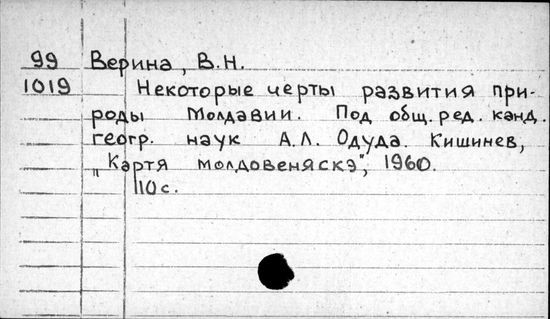 99 Верина, В.Н.
1019 Некоторые черты развития при-
роды Молдавии. Под общ. ред. канд.
геогр. наук А.Л. Одуда. Кишинев,
„Картя молдовеняскэ", 1960.
110 с.